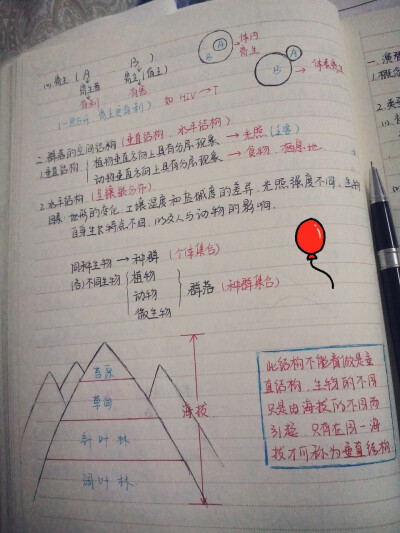 (4) 寄生 ( A B )
寄生者 寄主(宿主)
有利 有害
A B → 体内寄生
B A → 体表寄生
如 HIV → T
二、群落的空间结构 (垂直结构、水平结构)
1.垂直结构 { 植物垂直方向上具有分层现象 → 光照 (主要)
动物垂直方向上具有分层现象 → 食物、栖息地
2.水平结构 (呈镶嵌分布)
因素:地形的变化、土壤湿度和盐碱度的差异、光照强度不同、生物
自身生长特点不同、以及人与动物的影响。
同种生物 → 种群 (个体集合)
(各)不同生物 { 植物
动物 } 群落 (种群集合)
微生物
苔原
草甸
针叶林
阔叶林
海拔
此结构不能看做是垂
直结构、生物的不同
只是由海拔的不同而
引起、只有在同一海
拔才可称为垂直结构